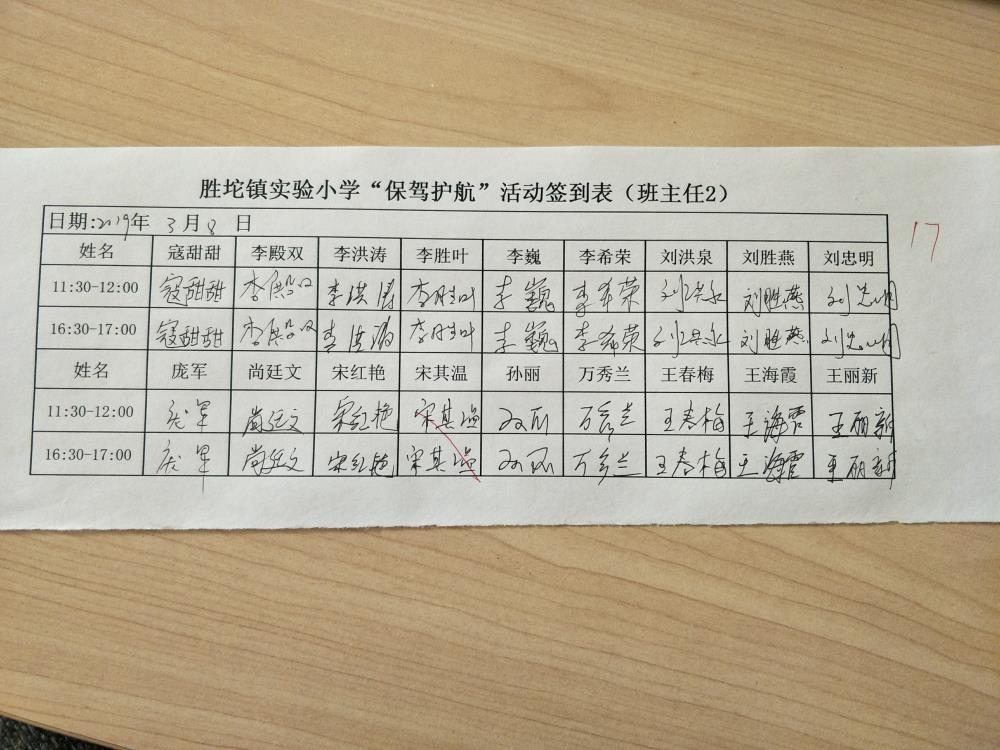 胜坨镇实验小学“保驾护航”活动签到表（班主任2）
日期:2019年 3月8 日
17
姓名 寇甜甜 李殿双 李洪涛 李胜叶 李巍 李希荣 刘洪泉 刘胜燕 刘忠明
11:30-12:00 寇甜甜 李殿双 李洪涛 李胜叶 李巍 李希荣 刘洪泉 刘胜燕 刘忠明
16:30-17:00 寇甜甜 李殿双 李洪涛 李胜叶 李巍 李希荣 刘洪泉 刘胜燕 刘忠明
姓名 庞军 尚廷文 宋红艳 宋其温 孙丽 万秀兰 王春梅 王海霞 王丽新
11:30-12:00 庞军 尚廷文 宋红艳 宋其温 孙丽 万秀兰 王春梅 王海霞 王丽新
16:30-17:00 庞军 尚廷文 宋红艳 宋其温 孙丽 万秀兰 王春梅 王海霞 王丽新